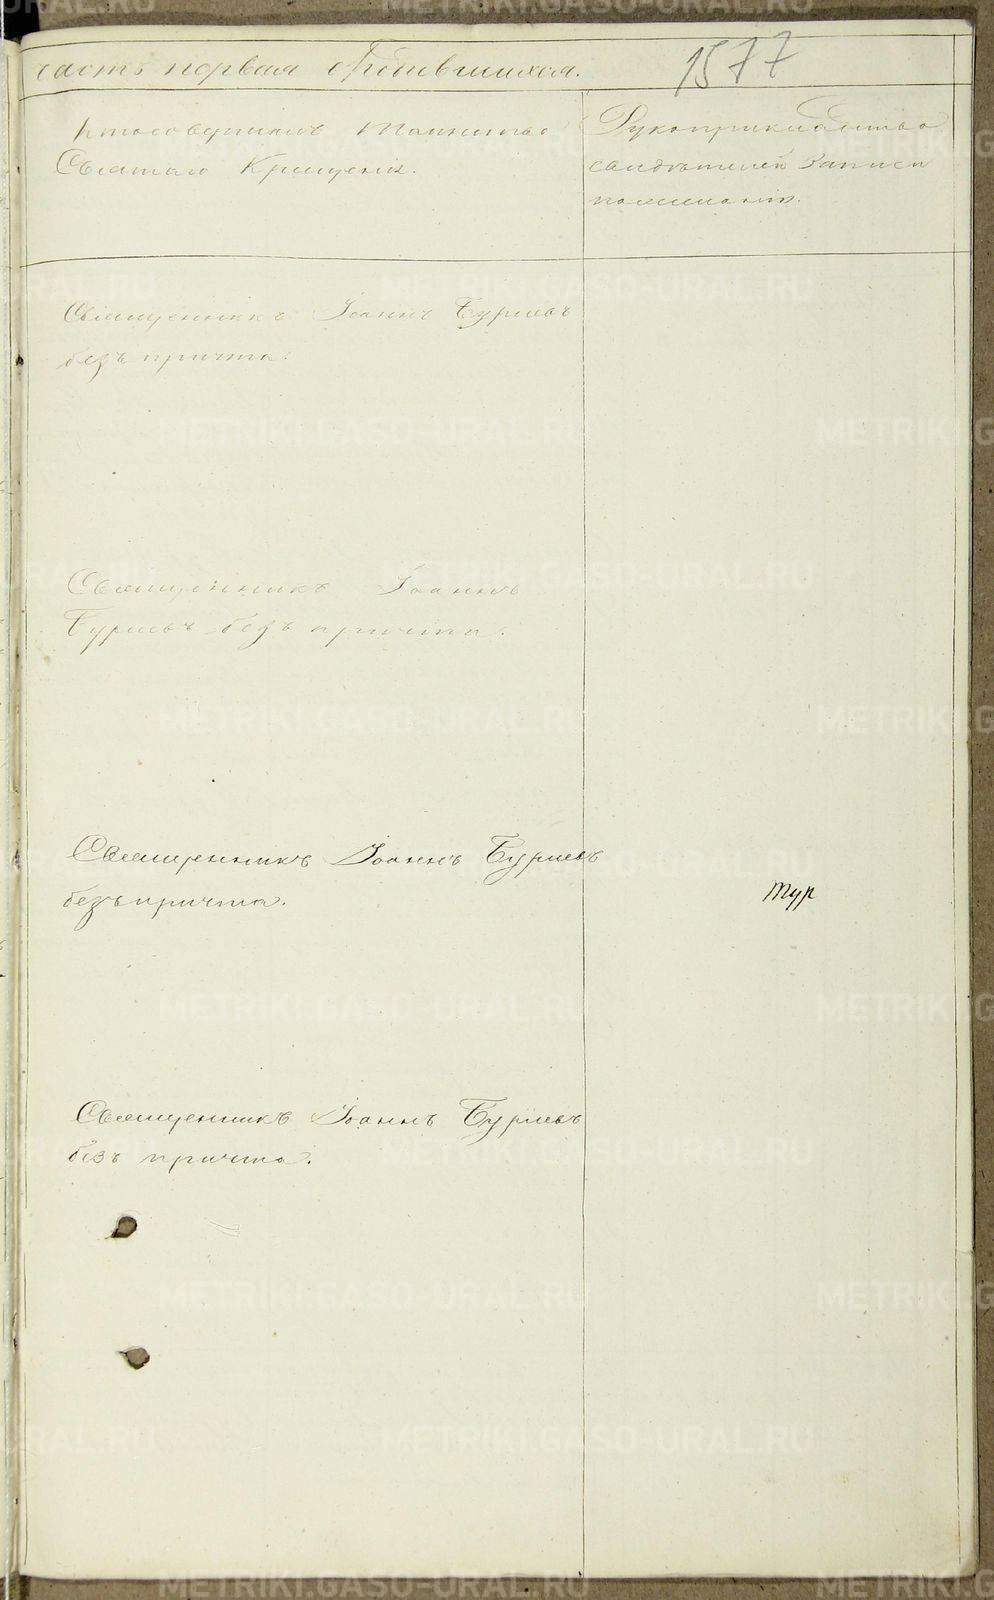 часть первая о родившихся.
1577
Кто совершилъ таинство
Святаго Крещенія.
Рукоприкладство
свидѣтелей записи
по желанію.
Священникъ Іоаннъ Бурцевъ
безъ причта.
Священникъ Іоаннъ
Бурцевъ безъ причта.
Священникъ Іоаннъ Бурцевъ
безъ причта.
тур
Священникъ Іоаннъ Бурцевъ
безъ причта.
METRIKI.GASO-URAL.RU